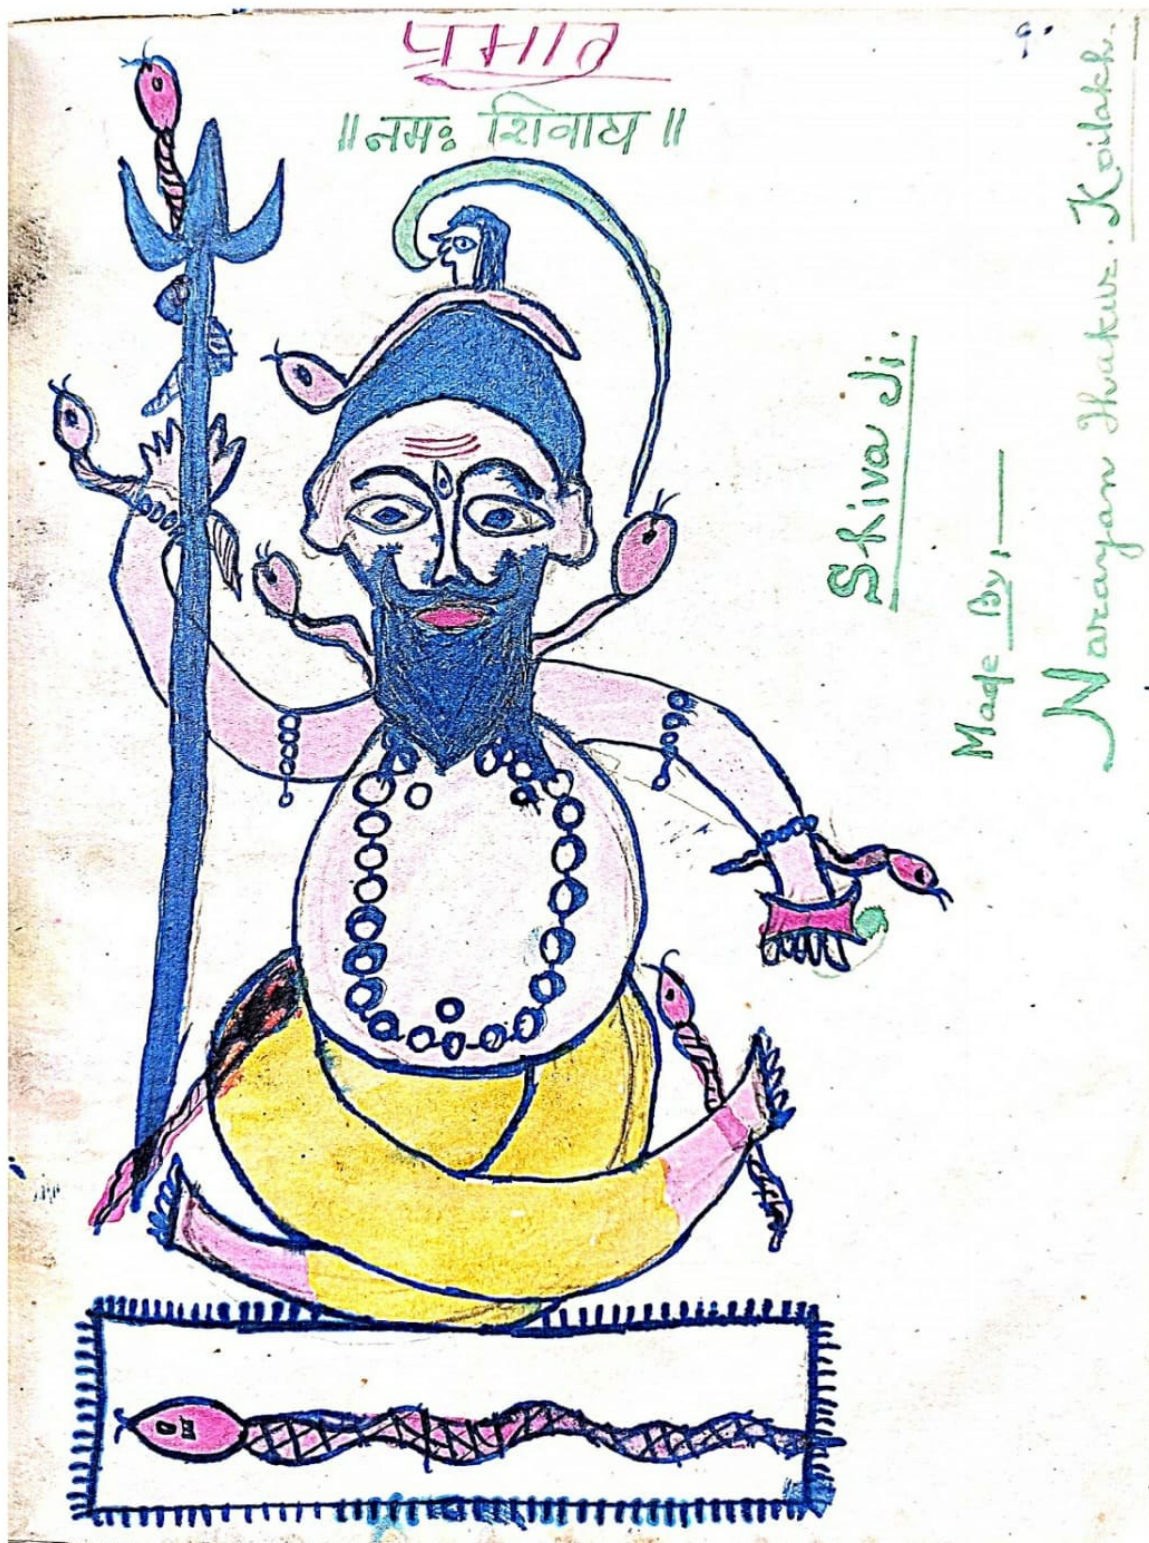 प्रभात
१.
॥ नमः शिवाय ॥
Shiva Ji.
Made By:—
Narayan Thakur. Koilakh.